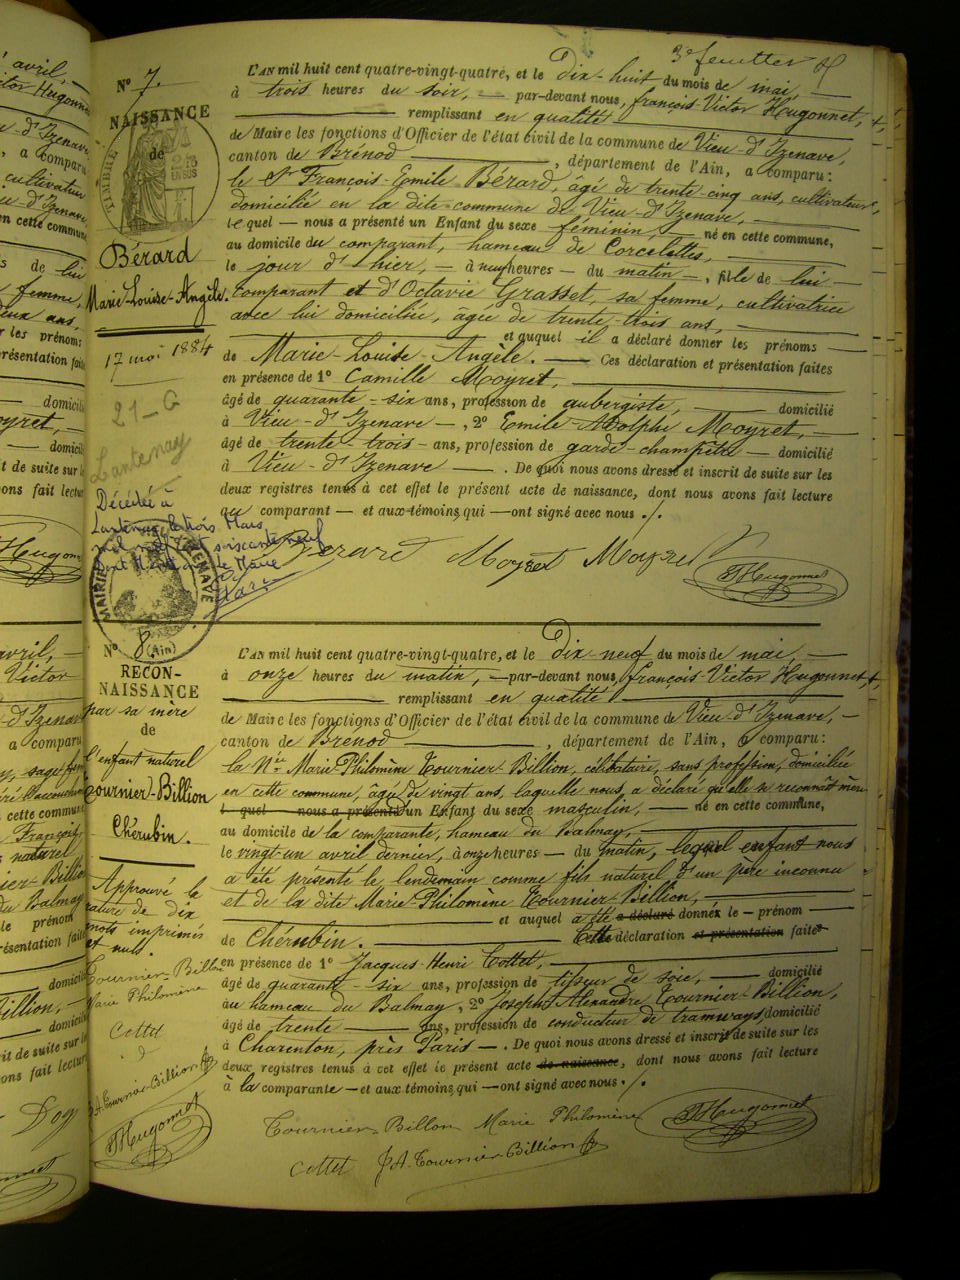 3e feuillet
N° 7.
NAISSANCE
de
Bérard
Marie-Louise-Angèle.
17 mai 1884
21-G
Lantenay
Décédée à
Lantenay le trois Mars
mil neuf cent soixante neuf
Le Maire
L'AN mil huit cent quatre-vingt-quatre, et le Dix-huit du mois de mai,
à trois heures du soir, par-devant nous, François Victor Hugonnet,
remplissant en qualité
de Maire les fonctions d'Officier de l'état civil de la commune de Vieu-d'Izenave,
canton de Brénod, département de l'Ain, a comparu:
le Sr François-Emile Bérard, âgé de trente-cinq ans, cultivateur,
domicilié en la dite commune de Vieu-d'Izenave,
lequel — nous a présenté un Enfant du sexe féminin né en cette commune,
au domicile du comparant, hameau de Corcelettes,
le jour d'hier, — à neuf heures — du matin —, fille de lui
comparant et d'Octavie Grasset, sa femme, cultivatrice
avec lui domiciliée, âgée de trente-trois ans,
et auquel il a déclaré donner les prénoms
de Marie-Louise-Angèle. — Ces déclaration et présentation faites
en présence de 1° Camille Moyret,
âgé de quarante-six ans, profession de aubergiste, domicilié
à Vieu-d'Izenave —, 2° Emile Adolphe Moyret,
âgé de trente-trois- ans, profession de garde-champêtre — domicilié
à Vieu-d'Izenave —. De quoi nous avons dressé et inscrit de suite sur les
deux registres tenus à cet effet le présent acte de naissance, dont nous avons fait lecture
au comparant — et aux témoins, qui — ont signé avec nous ./.
Berard Moyret Moyret
Hugonnet
N° 8
(Ain)
RECON-
NAISSANCE
par sa mère
de
l'enfant naturel
Tournier-Billion
Chérubin.
Approuvé la
rature de dix
mots imprimés
et nuls.
Tournier-Billon
Marie Philomène
Cottet
J.A. Tournier-Billion
Hugonnet
L'AN mil huit cent quatre-vingt-quatre, et le Dix-neuf du mois de mai,
à onze heures du matin, — par-devant nous, François-Victor Hugonnet,
remplissant en qualité
de Maire les fonctions d'Officier de l'état civil de la commune de Vieu-d'Izenave, —
canton de Brénod, département de l'Ain, a comparu:
la Née Marie-Philomène Tournier-Billion, célibataire, sans profession, domiciliée
en cette commune, âgée de vingt ans, laquelle nous a déclaré qu'elle se reconnaît mère
l quel nous a présenté d'un Enfant du sexe masculin, — né en cette commune,
au domicile de la comparante, hameau du Balmay,
le vingt-un avril dernier, à onze heures — du matin, lequel enfant nous
a été présenté le lendemain comme fils naturel d'un père inconnu
et de la dite Marie-Philomène Tournier-Billion,
et auquel a été a déclaré donnés le — prénom
de Chérubin. Cette déclaration et présentation faites
en présence de 1° Jacques-Henri Cottet,
âgé de quarante-six ans, profession de tisseur de soie, domicilié
au hameau du Balmay, 2° Joseph-Alexandre Tournier-Billion,
âgé de trente — ans, profession de conducteur de tramways domicilié
à Charenton, près Paris —. De quoi nous avons dressé et inscrit de suite sur les
deux registres tenus à cet effet le présent acte de naissance, dont nous avons fait lecture
à la comparante — et aux témoins, qui — ont signé avec nous ./.
Tournier-Billon Marie Philomène
Hugonnet
Cottet J.A. Tournier-Billion